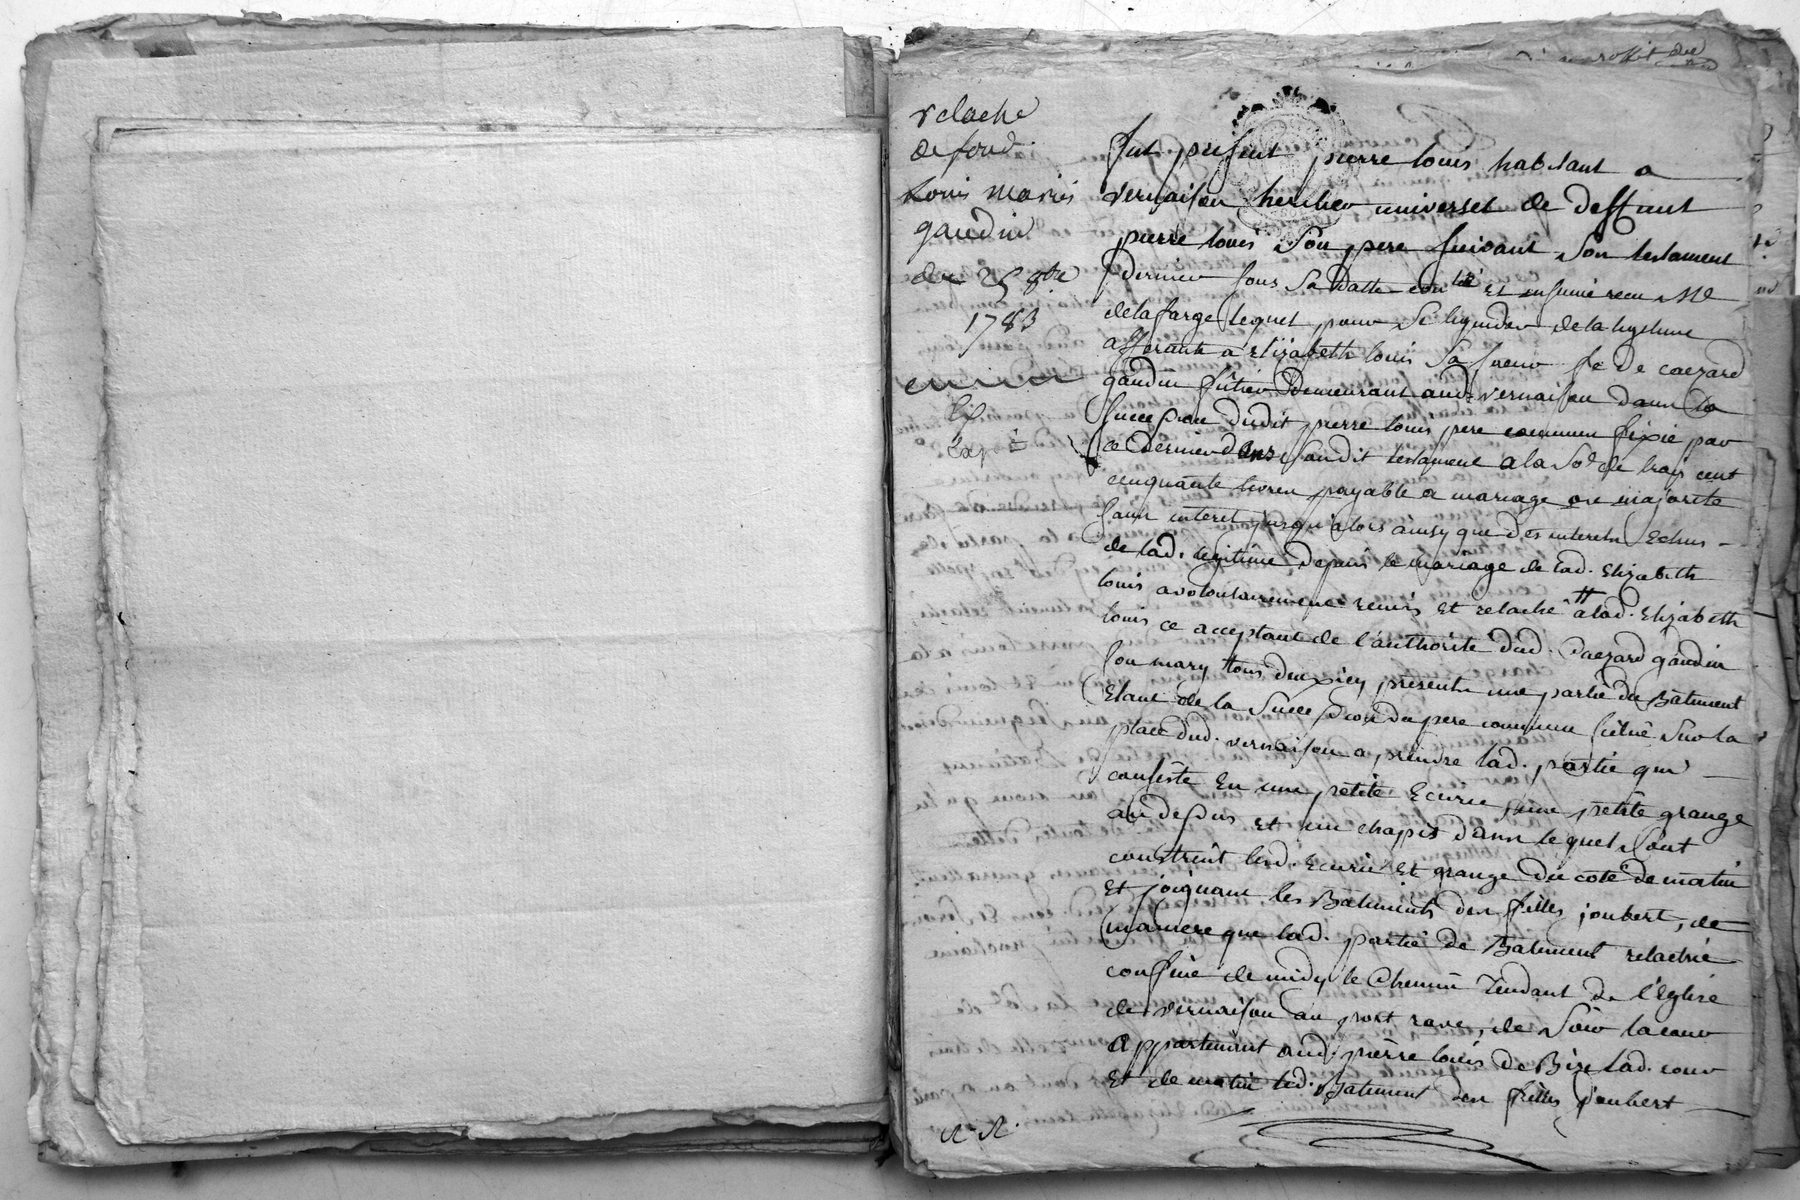 relache
de fond
Louis maries
gaudin
du 25 8bre
1783
Exp
fut present pierre louis habitant a
vernaison heritier universel de deffunt
pierre louis son pere suivant son testament
dernier sous sa datte con.lé et insinué recu Me
delafarge lequel pour se liquider de la legitime
afferante a Elizabeth louis sa soeur fe de caezard
gaudin fûtier demeurant aud. vernaison dans la
succession dudit pierre louis pere commun fixée par
ce dernier dans sondit testament a la Se de trois cent
cinquante livres payable a mariage ou majorité
sans interet jusqu'alors ainsy que des interets Echus
de lad. legitime depuis le mariage de lad. Elizabeth
louis a volontairement remis et relaché a lad. Elizabeth
louis ce acceptant de l'authorité dud. Caezard gaudin
son mary tous deux icy presents une partie de Bâtiment
Etant de la succession du pere commun située sur la
place dud. vernaison a prendre lad. partie qui
consiste En une petite Ecurie, une petite grange
au dessus et un chapit dans lequel sont
construit lesd. Ecurie et grange du coté de matin
et joignant les Bâtiments des filles joubert, de
maniere que lad. partie de Batiment relachée
confine de midy le Chemin tendant de l'Eglise
de vernaison au port rave, de soir la cour
appartenant aud. pierre louis de Bize lad. cour
et de matin led. Batiment des filles joubert